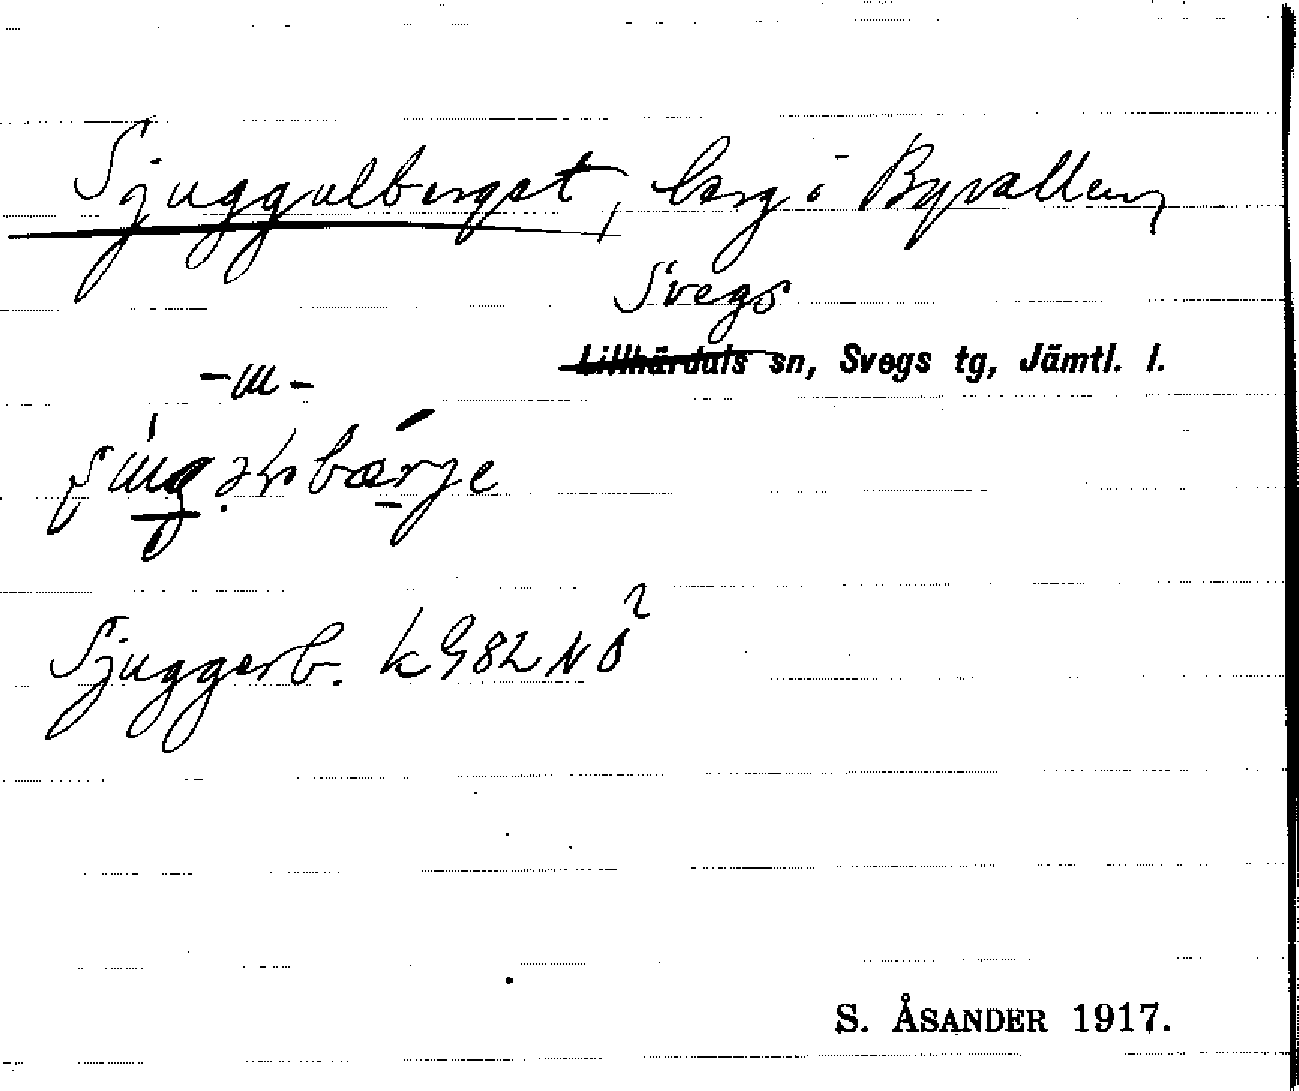 Sjuggulberget, berg i Byvallen,
Svegs
Lillhärdals sn, Svegs tg, Jämtl. l.
Sjuggerb. k G82 NO²
S. ÅSANDER 1917.